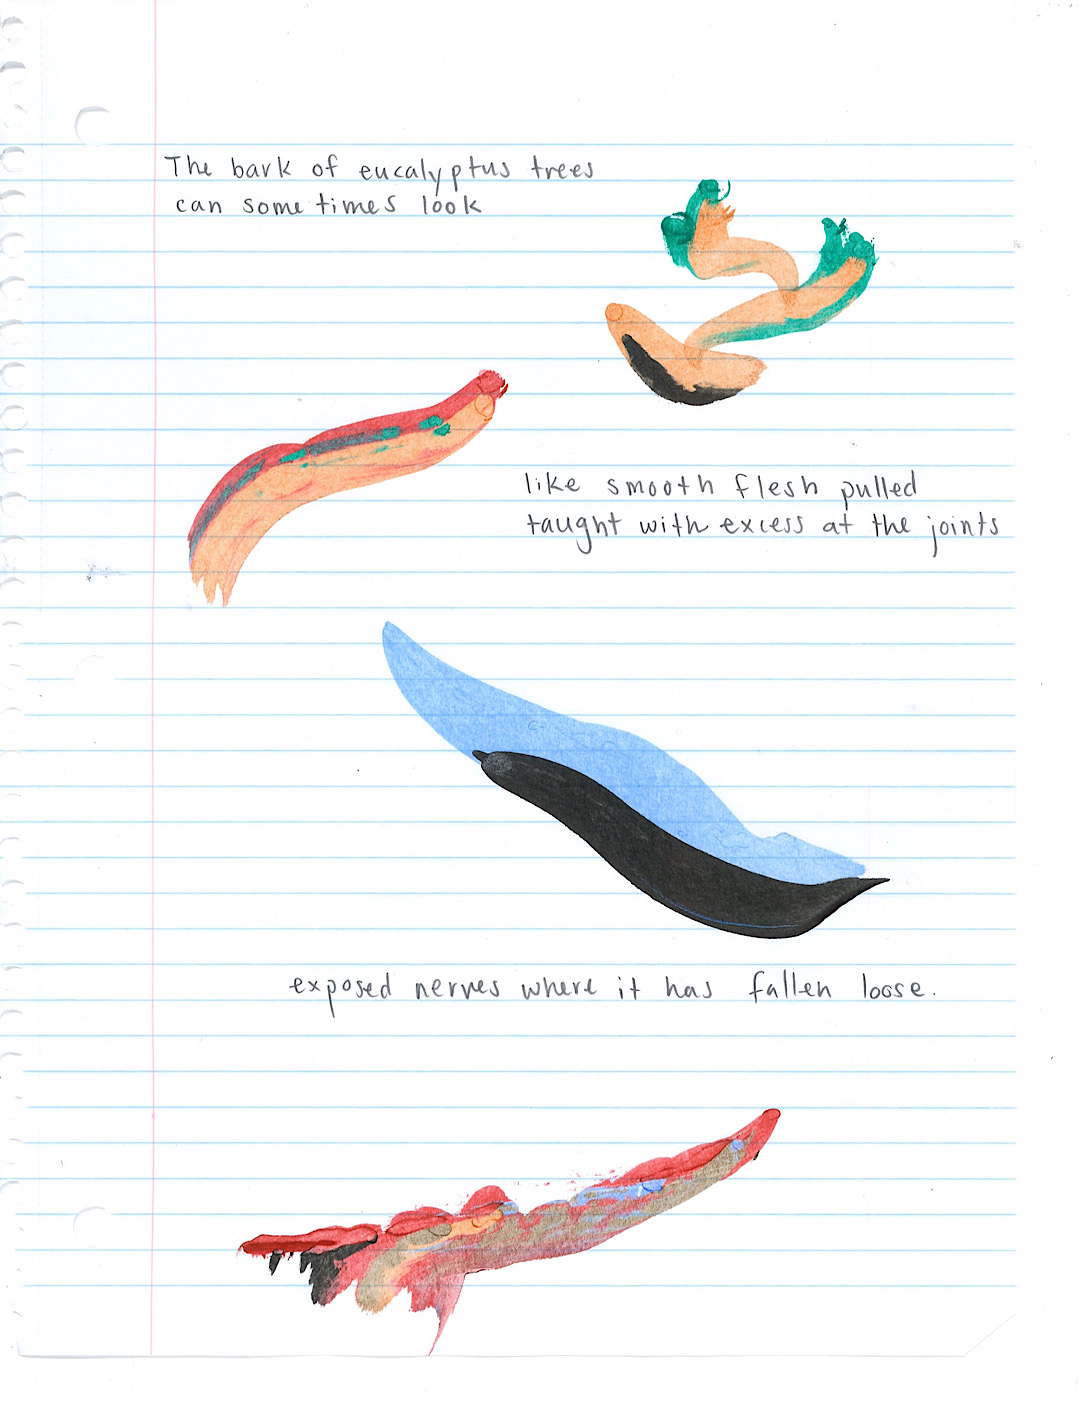 The bark of eucalyptus trees
can sometimes look
like smooth flesh pulled
taught with excess at the joints
exposed nerves where it has fallen loose.